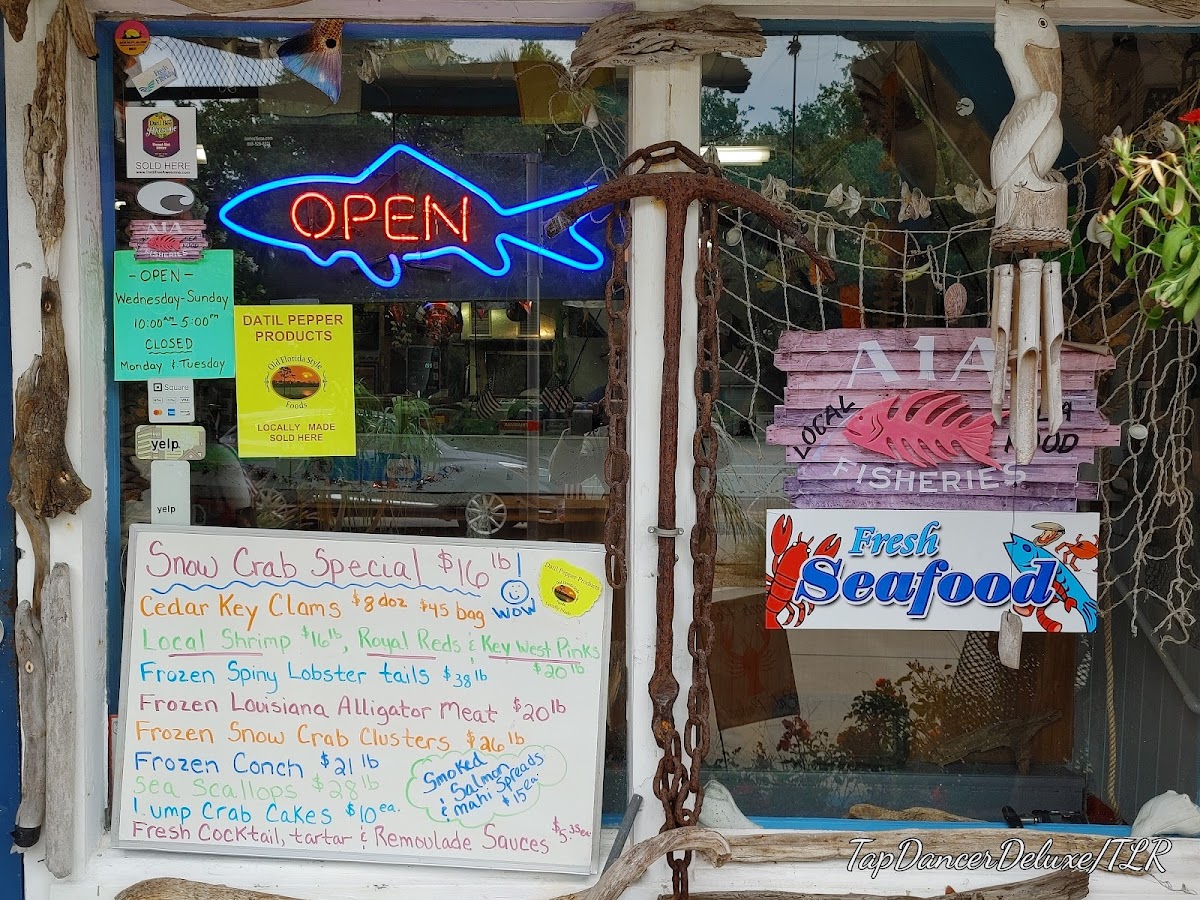 Datil Bee
SOLD HERE
OPEN
A1A
FISHERIES
- OPEN -
Wednesday-Sunday
10:00 AM - 5:00 PM
CLOSED
Monday & Tuesday
DATIL PEPPER
PRODUCTS
Old Florida Style
Foods
LOCALLY MADE
SOLD HERE
Square
yelp
yelp
A1A
LOCAL
FISHERIES
Fresh
Seafood
Snow Crab Special $16 lb!
WOW
Datil Pepper Products
Cedar Key Clams $8 doz $45 bag
Local Shrimp $16 lb, Royal Reds & Key West Pinks
$20 lb
Frozen Spiny Lobster tails $38 lb
Frozen Louisiana Alligator Meat $20 lb
Frozen Snow Crab Clusters $26 lb
Frozen Conch $21 lb
Sea Scallops $28 lb
Smoked
Salmon
& mahi Spreads
$15 ea.
Lump Crab Cakes $10 ea.
Fresh Cocktail, tartar & Remoulade Sauces $5.35 ea
TapDancerDeluxe/TLR